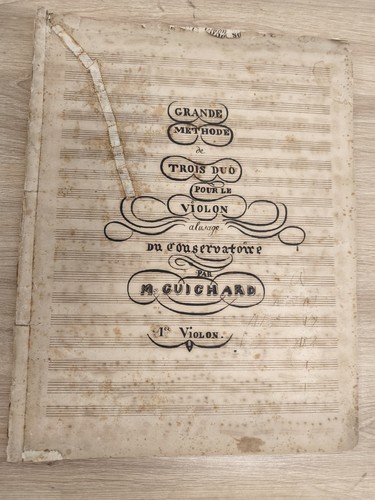 GRANDE
METHODE
de
TROIS DUO
POUR LE
VIOLON
alusage
DU Conservatoire
PAR
M. GUICHARD
1er VIOLON.